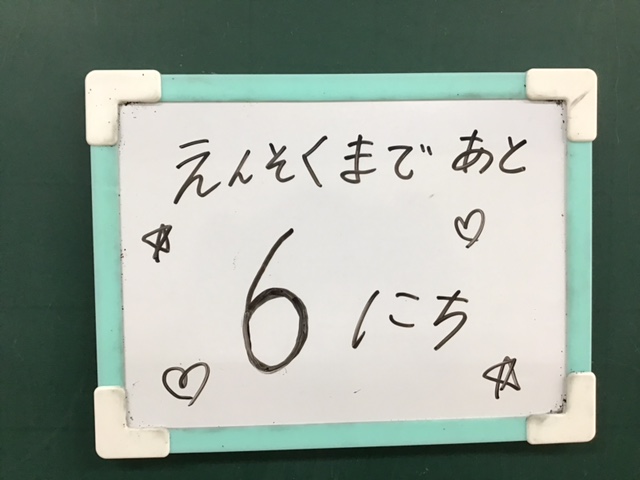 えんそくまで あと
6 にち